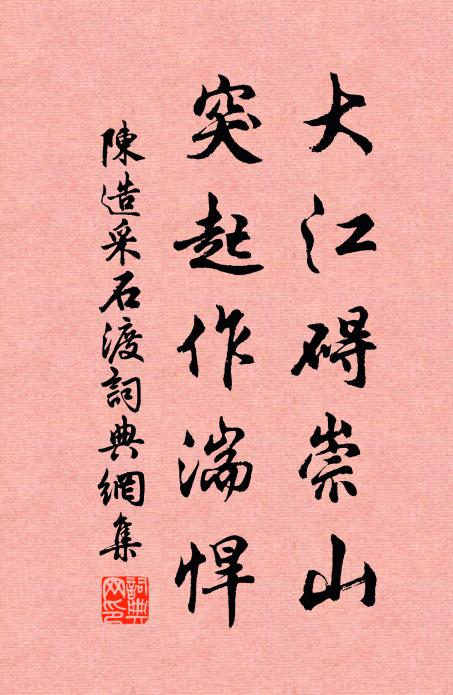 大江碍崇山
突起作湍悍
陳造采石渡詞典網集
詞典網印